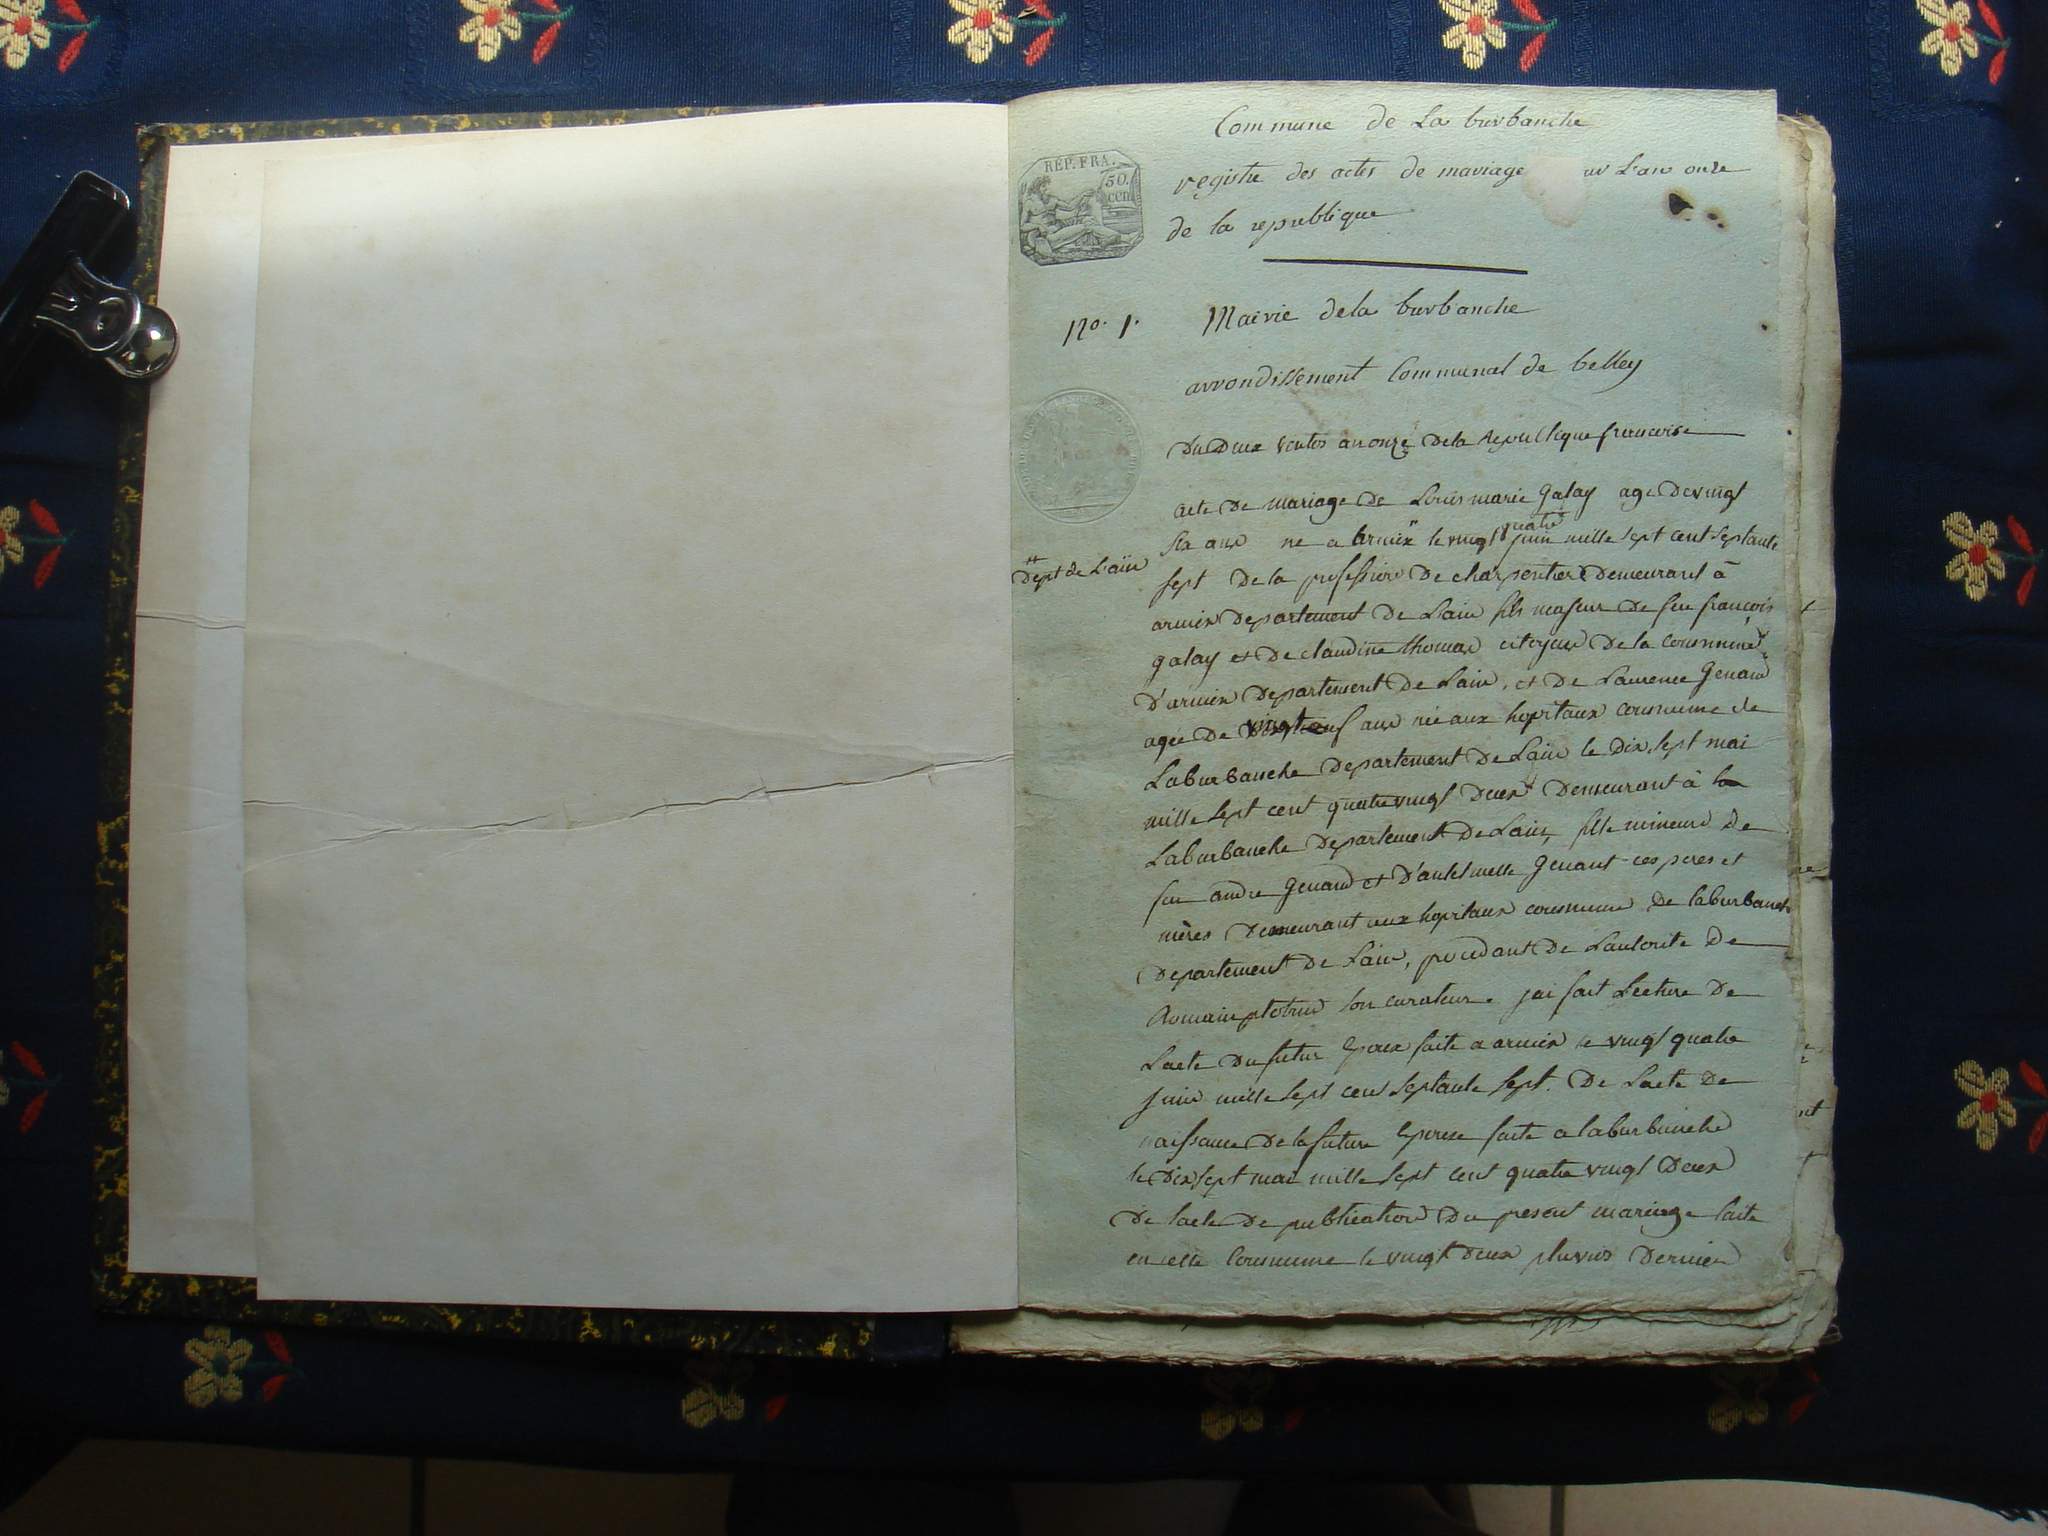 Commune de La burbanche
REP. FRA.
50.
cen
registre des actes de mariage ur L'an onze
de la republique
No. 1. Mairie dela burbanche
arrondissement Communal de belley
du Deux ventos an onze dela Republique francoise
acte De mariage De Louis marie Galay age De vingt
quatre
six ans ne a le vingt juin mille sept cent septante
dept de L'ain
sept De la profession De charpentier Demeurant à
armix Departement De Lain fils majeur De feu françois
galay et De claudine thomas citoyens De la commune
D'armix Departement De Lain, et De Laurence Genand
agée De ans née aux hopitaux commune de
Laburbanche Departement De Lain le Dix sept mai
mille sept cent quatre vingt Deux Demeurant à la
Laburbanche Departement De Lain, fille mineure De
feu andre Genand et D'antelmette Genant ces peres et
mères Demeurant aux hopitaux commune De laburbanche
Departement De Lain, procedant De Lautorite De
Romain son curateur. jai fait Lecture De
Lacte Du futur Epoux faite a armix le vingt quatre
juin mille sept cent septante sept. De Lacte De
naissance De la future Epouse faite a laburbanche
le Dix sept mai mille sept cent quatre vingt Deux
De lacte De publication Du present mariage faite
en cette Commune le vingt Deux pluvios Dernier